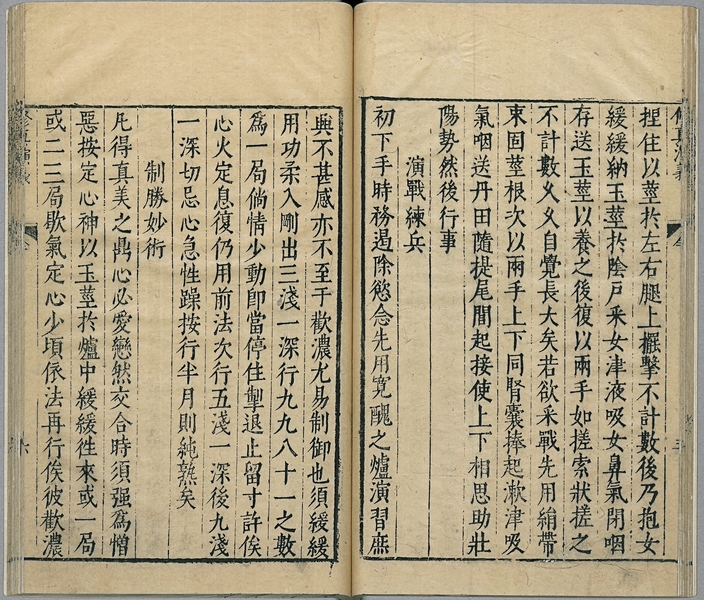 捏住以莖於左右腿上擺擊不計數後乃抱女
緩緩納玉莖於陰戶采女津液吸女鼻氣閉咽
存送玉莖以養之後復以兩手如搓索狀搓之
不計數乂乂自覺長大矣若欲采戰先用絹帶
束固莖根次以兩手上下同腎囊捧起漱津吸
氣咽送丹田隨提尾閭起接使上下相思助壯
陽勢然後行事
演戰練兵
初下手時務遏除慾念先用寬醜之爐演習庶
興不甚感亦不至于歡濃尤易制御也須緩緩
用功柔入剛出三淺一深行九九八十一之數
爲一局倘情少動卽當停住掣退止留寸許俟
心火定息復仍用前法次行五淺一深後九淺
一深切忌心急性躁按行半月則純熟矣
制勝妙術
凡得真美之鼎心必愛戀然交合時須强爲憎
惡按定心神以玉莖於爐中緩緩徃來或一局
或二三局歇氣定心少頃依法再行俟彼歡濃